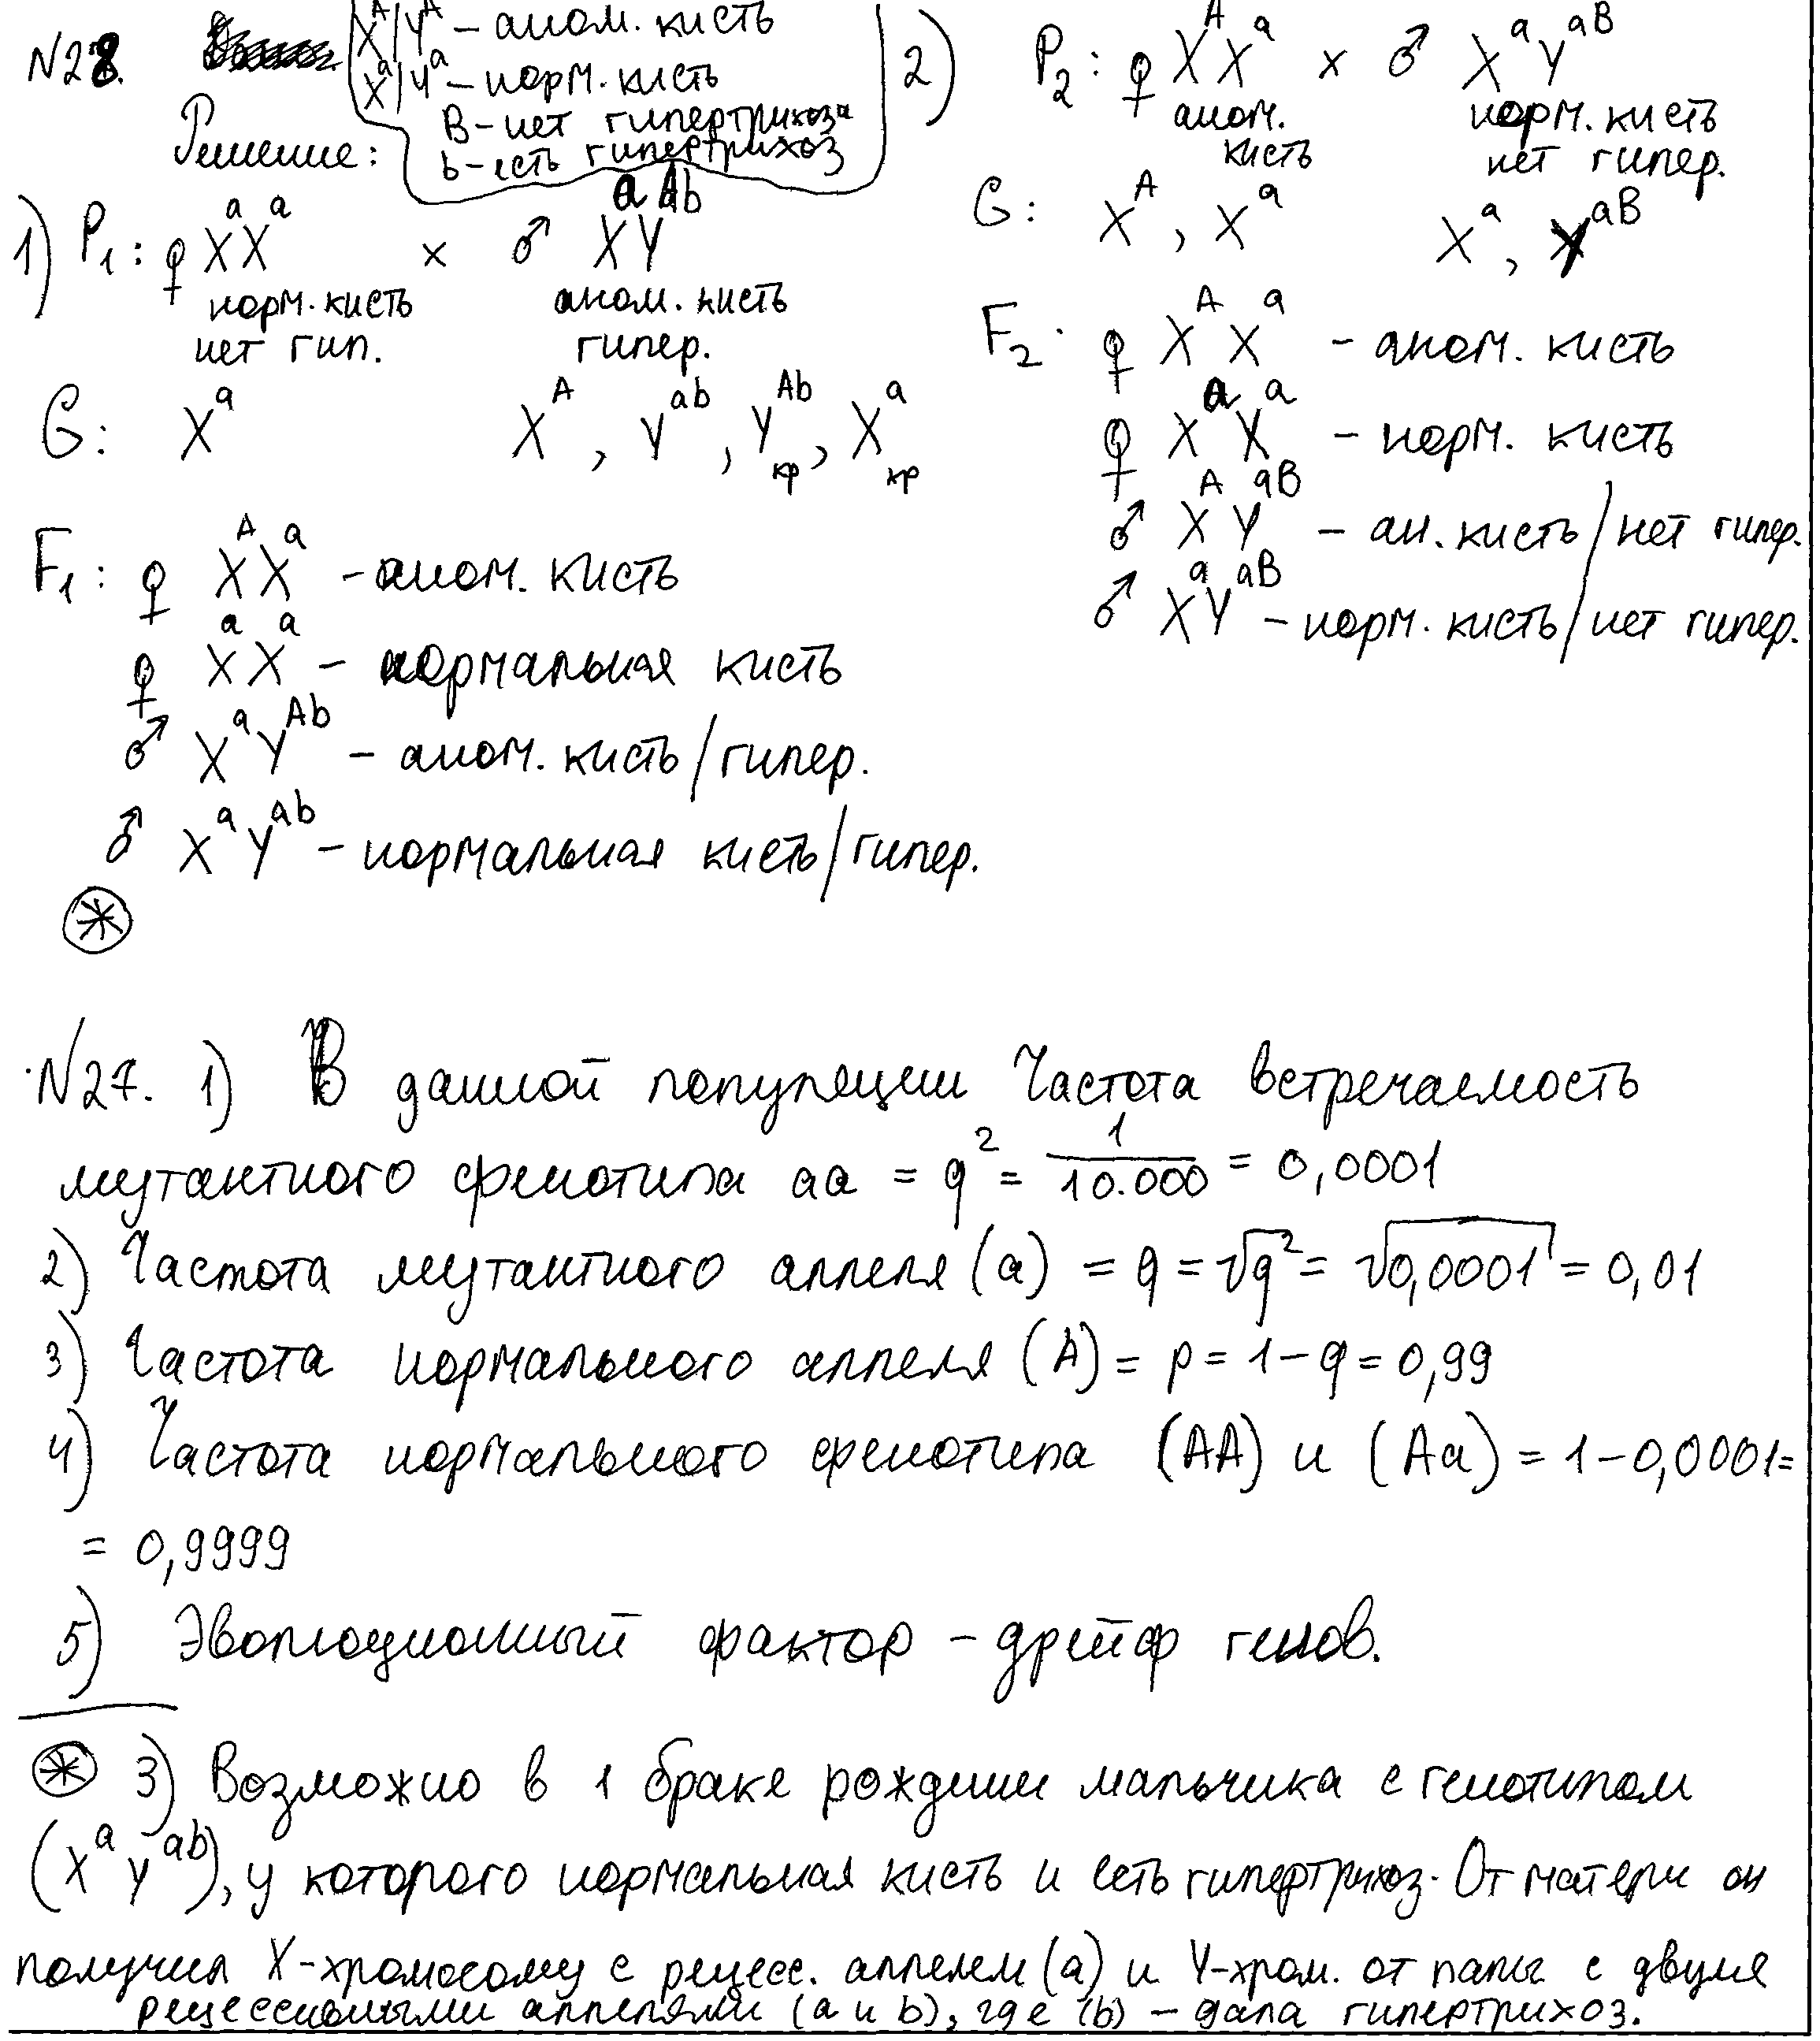 N28.
X^A/Y^A – аном. кисть
X^a/Y^a – норм. кисть
B – нет гипертрихоза
b – есть гипертрихоз
Решение:
1) P₁: ♀ X^aX^a × ♂ X^aY^Ab
норм. кисть аном. кисть
нет гип. гипер.
G: X^a X^A, Y^ab, Y^Ab кр, X^a кр
F₁: ♀ X^AX^a – аном. кисть
♀ X^aX^a – нормальная кисть
♂ X^aY^Ab – аном. кисть/гипер.
♂ X^aY^ab – нормальная кисть/гипер.
⊛
2) P₂: ♀ X^AX^a × ♂ X^aY^aB
аном. норм. кисть
кисть нет гипер.
G: X^A, X^a X^a, Y^aB
F₂. ♀ X^AX^a – аном. кисть
♀ X^aX^a – норм. кисть
♂ X^AY^aB – ан. кисть/нет гипер.
♂ X^aY^aB – норм. кисть/нет гипер.
N27. 1) В данной популяции Частота встречаемость
мутантного фенотипа aa = q² = 1/10.000 = 0,0001
2) Частота мутантного аллеля (a) = q = √q² = √0,0001 = 0,01
3) Частота нормального аллеля (A) = p = 1 – q = 0,99
4) Частота нормального фенотипа (AA) и (Aa) = 1 – 0,0001 =
= 0,9999
5) Эволюционный фактор – дрейф генов.
⊛ 3) Возможно в 1 браке рождении мальчика с генотипом
(X^a Y^ab), у которого нормальная кисть и есть гипертрихоз. От матери он
получил X-хромосому с рецесс. аллелем (a) и Y-хром. от папы с двумя
рецессивными аллелями (a и b), где (b) – дала гипертрихоз.